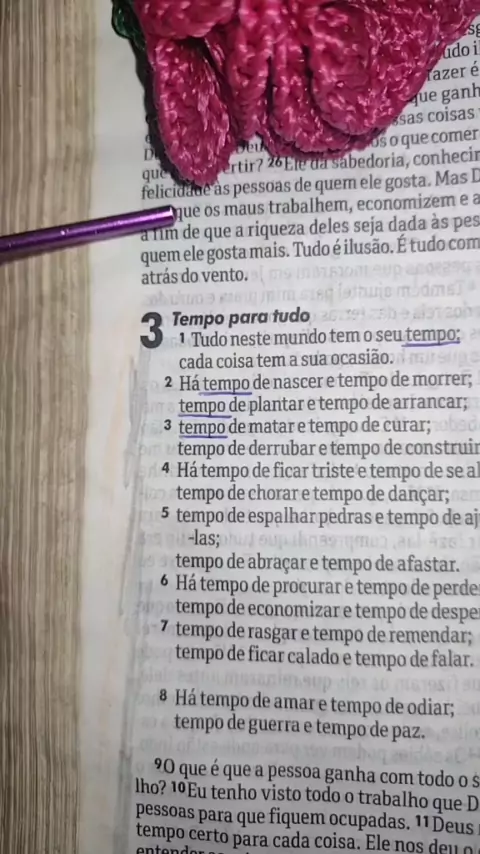 udo i
fazer é
que ganh
ssas coisas
os o que comer
que ertir? 26 Ele dá sabedoria, conhecim
felicidade às pessoas de quem ele gosta. Mas D
que os maus trabalhem, economizem e a
a fim de que a riqueza deles seja dada às pes
quem ele gosta mais. Tudo é ilusão. É tudo com
atrás do vento.
3 Tempo para tudo
1 Tudo neste mundo tem o seu tempo;
cada coisa tem a sua ocasião.
2 Há tempo de nascer e tempo de morrer;
tempo de plantar e tempo de arrancar;
3 tempo de matar e tempo de curar;
tempo de derrubar e tempo de construir
4 Há tempo de ficar triste e tempo de se al
tempo de chorar e tempo de dançar;
5 tempo de espalhar pedras e tempo de aj
-las;
tempo de abraçar e tempo de afastar.
6 Há tempo de procurar e tempo de perde
tempo de economizar e tempo de despe
7 tempo de rasgar e tempo de remendar;
tempo de ficar calado e tempo de falar.
8 Há tempo de amar e tempo de odiar;
tempo de guerra e tempo de paz.
9 O que é que a pessoa ganha com todo o s
lho? 10 Eu tenho visto todo o trabalho que D
pessoas para que fiquem ocupadas. 11 Deus
tempo certo para cada coisa. Ele nos deu o
entender